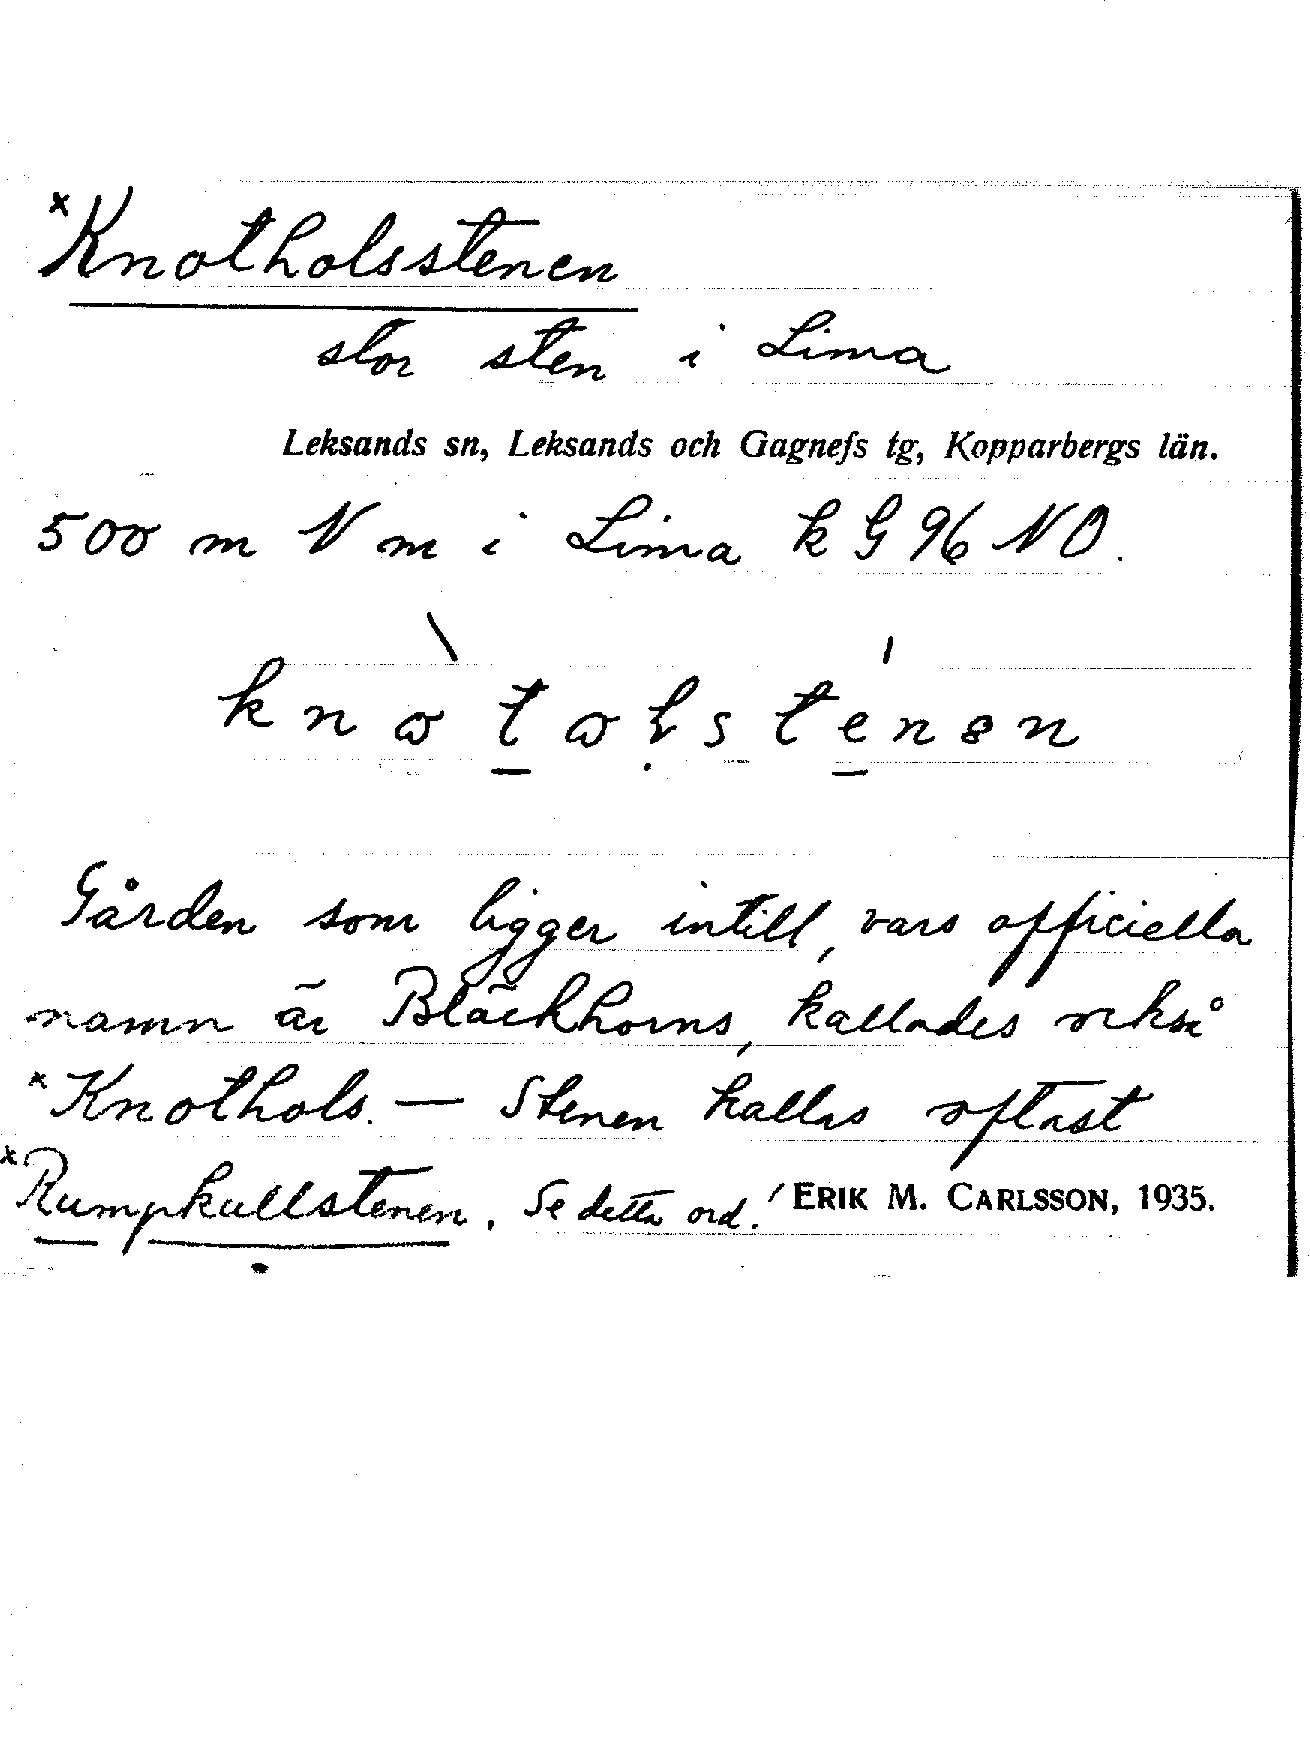 *Knotholsstenen
stor sten i Lima
Leksands sn, Leksands och Gagnefs tg, Kopparbergs län.
500 m N m i Lima k G 96 NO.
knotolstenen
Gården som ligger intill, vars officiella
namn är Bläckhorns, kallades också
*Knothols. — Stenen kallas oftast
*Rumpkullstenen. Se detta ord! ERIK M. CARLSSON, 1935.